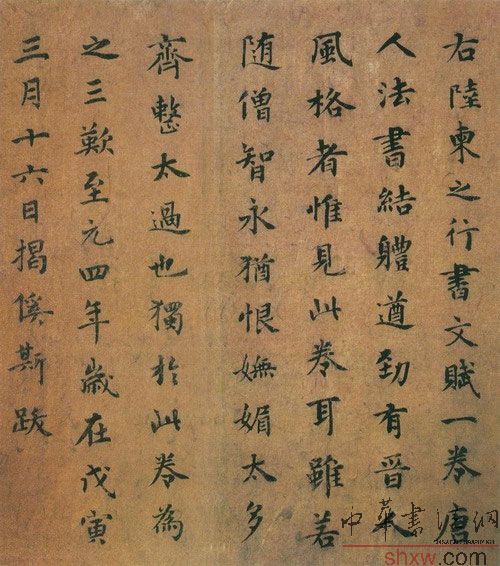 右陸柬之行書文賦一卷唐
人法書結體遒勁有晉人
風格者惟見此卷耳雖若
随僧智永猶恨嫵媚太多
齊整太過也獨於此卷為
之三歎至元四年歲在戊寅
三月十六日揭傒斯跋
中華書法網
shxw.com